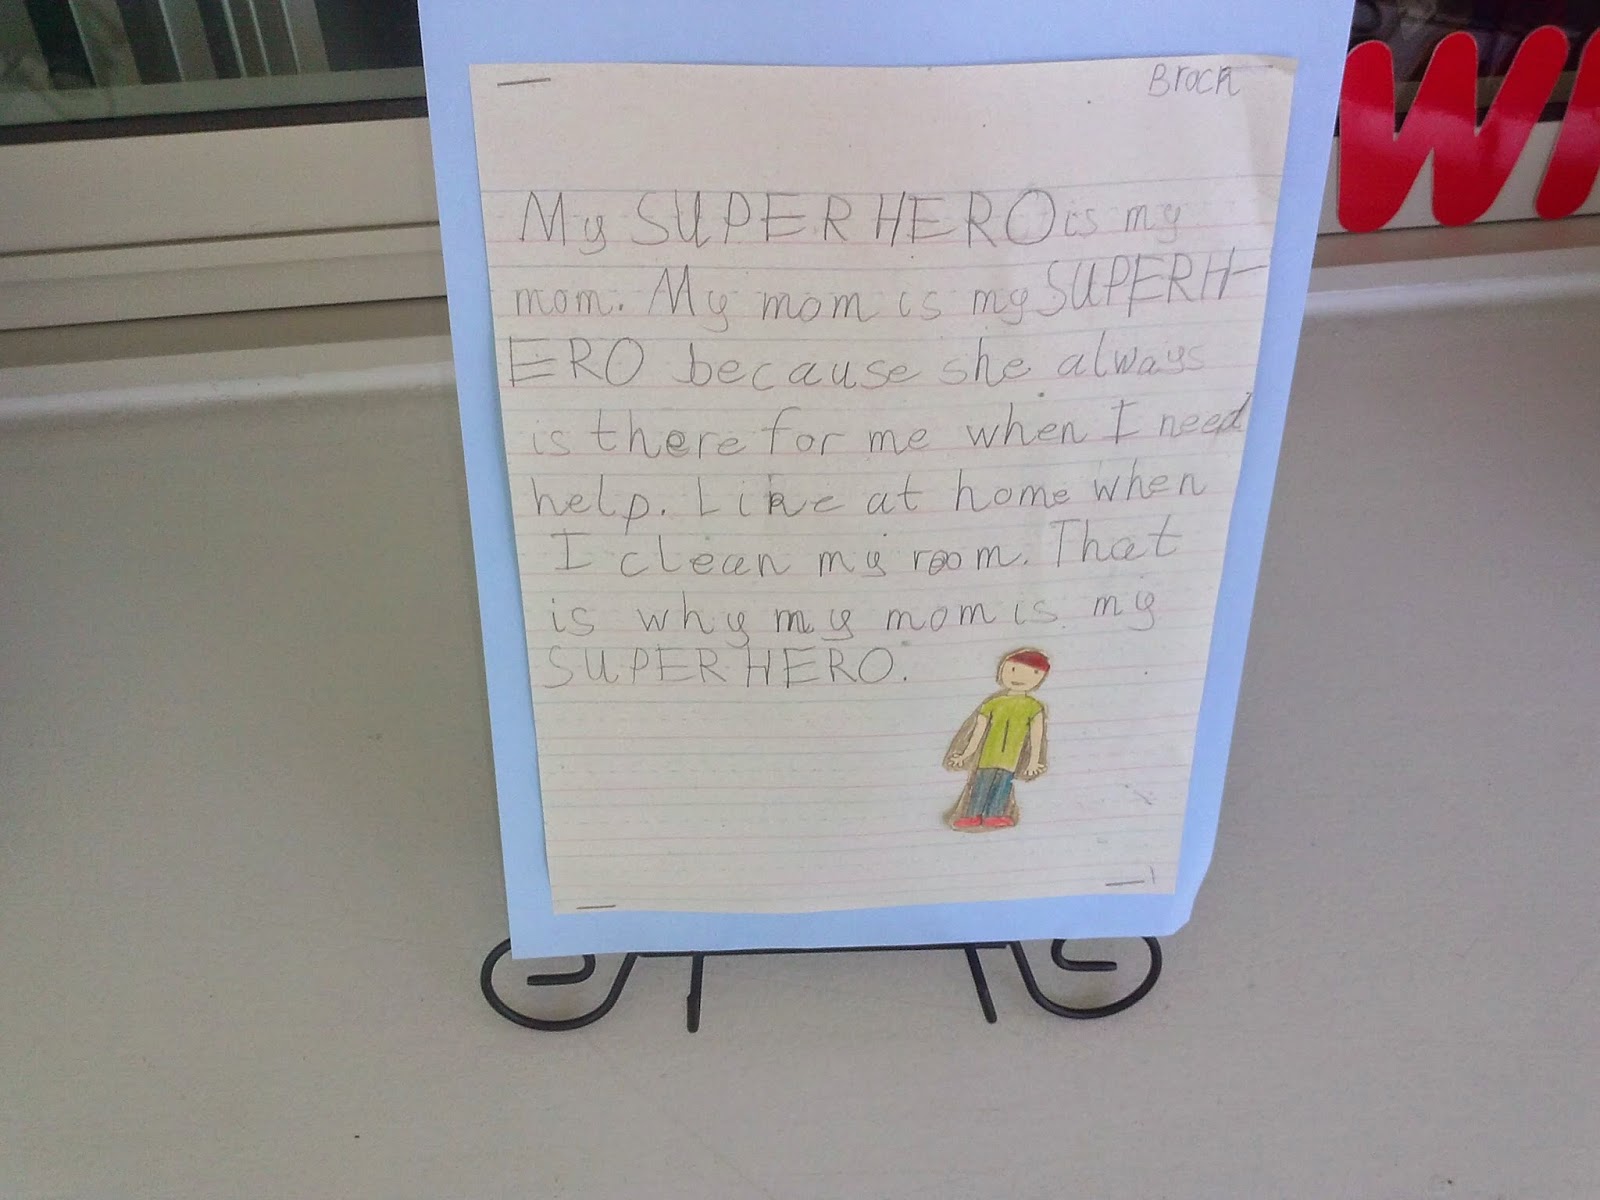 Brock
WI
My SUPERHERO is my
mom. My mom is my SUPERH-
ERO because she always
is there for me when I need
help. Like at home when
I clean my room. That
is why my mom is my
SUPERHERO.